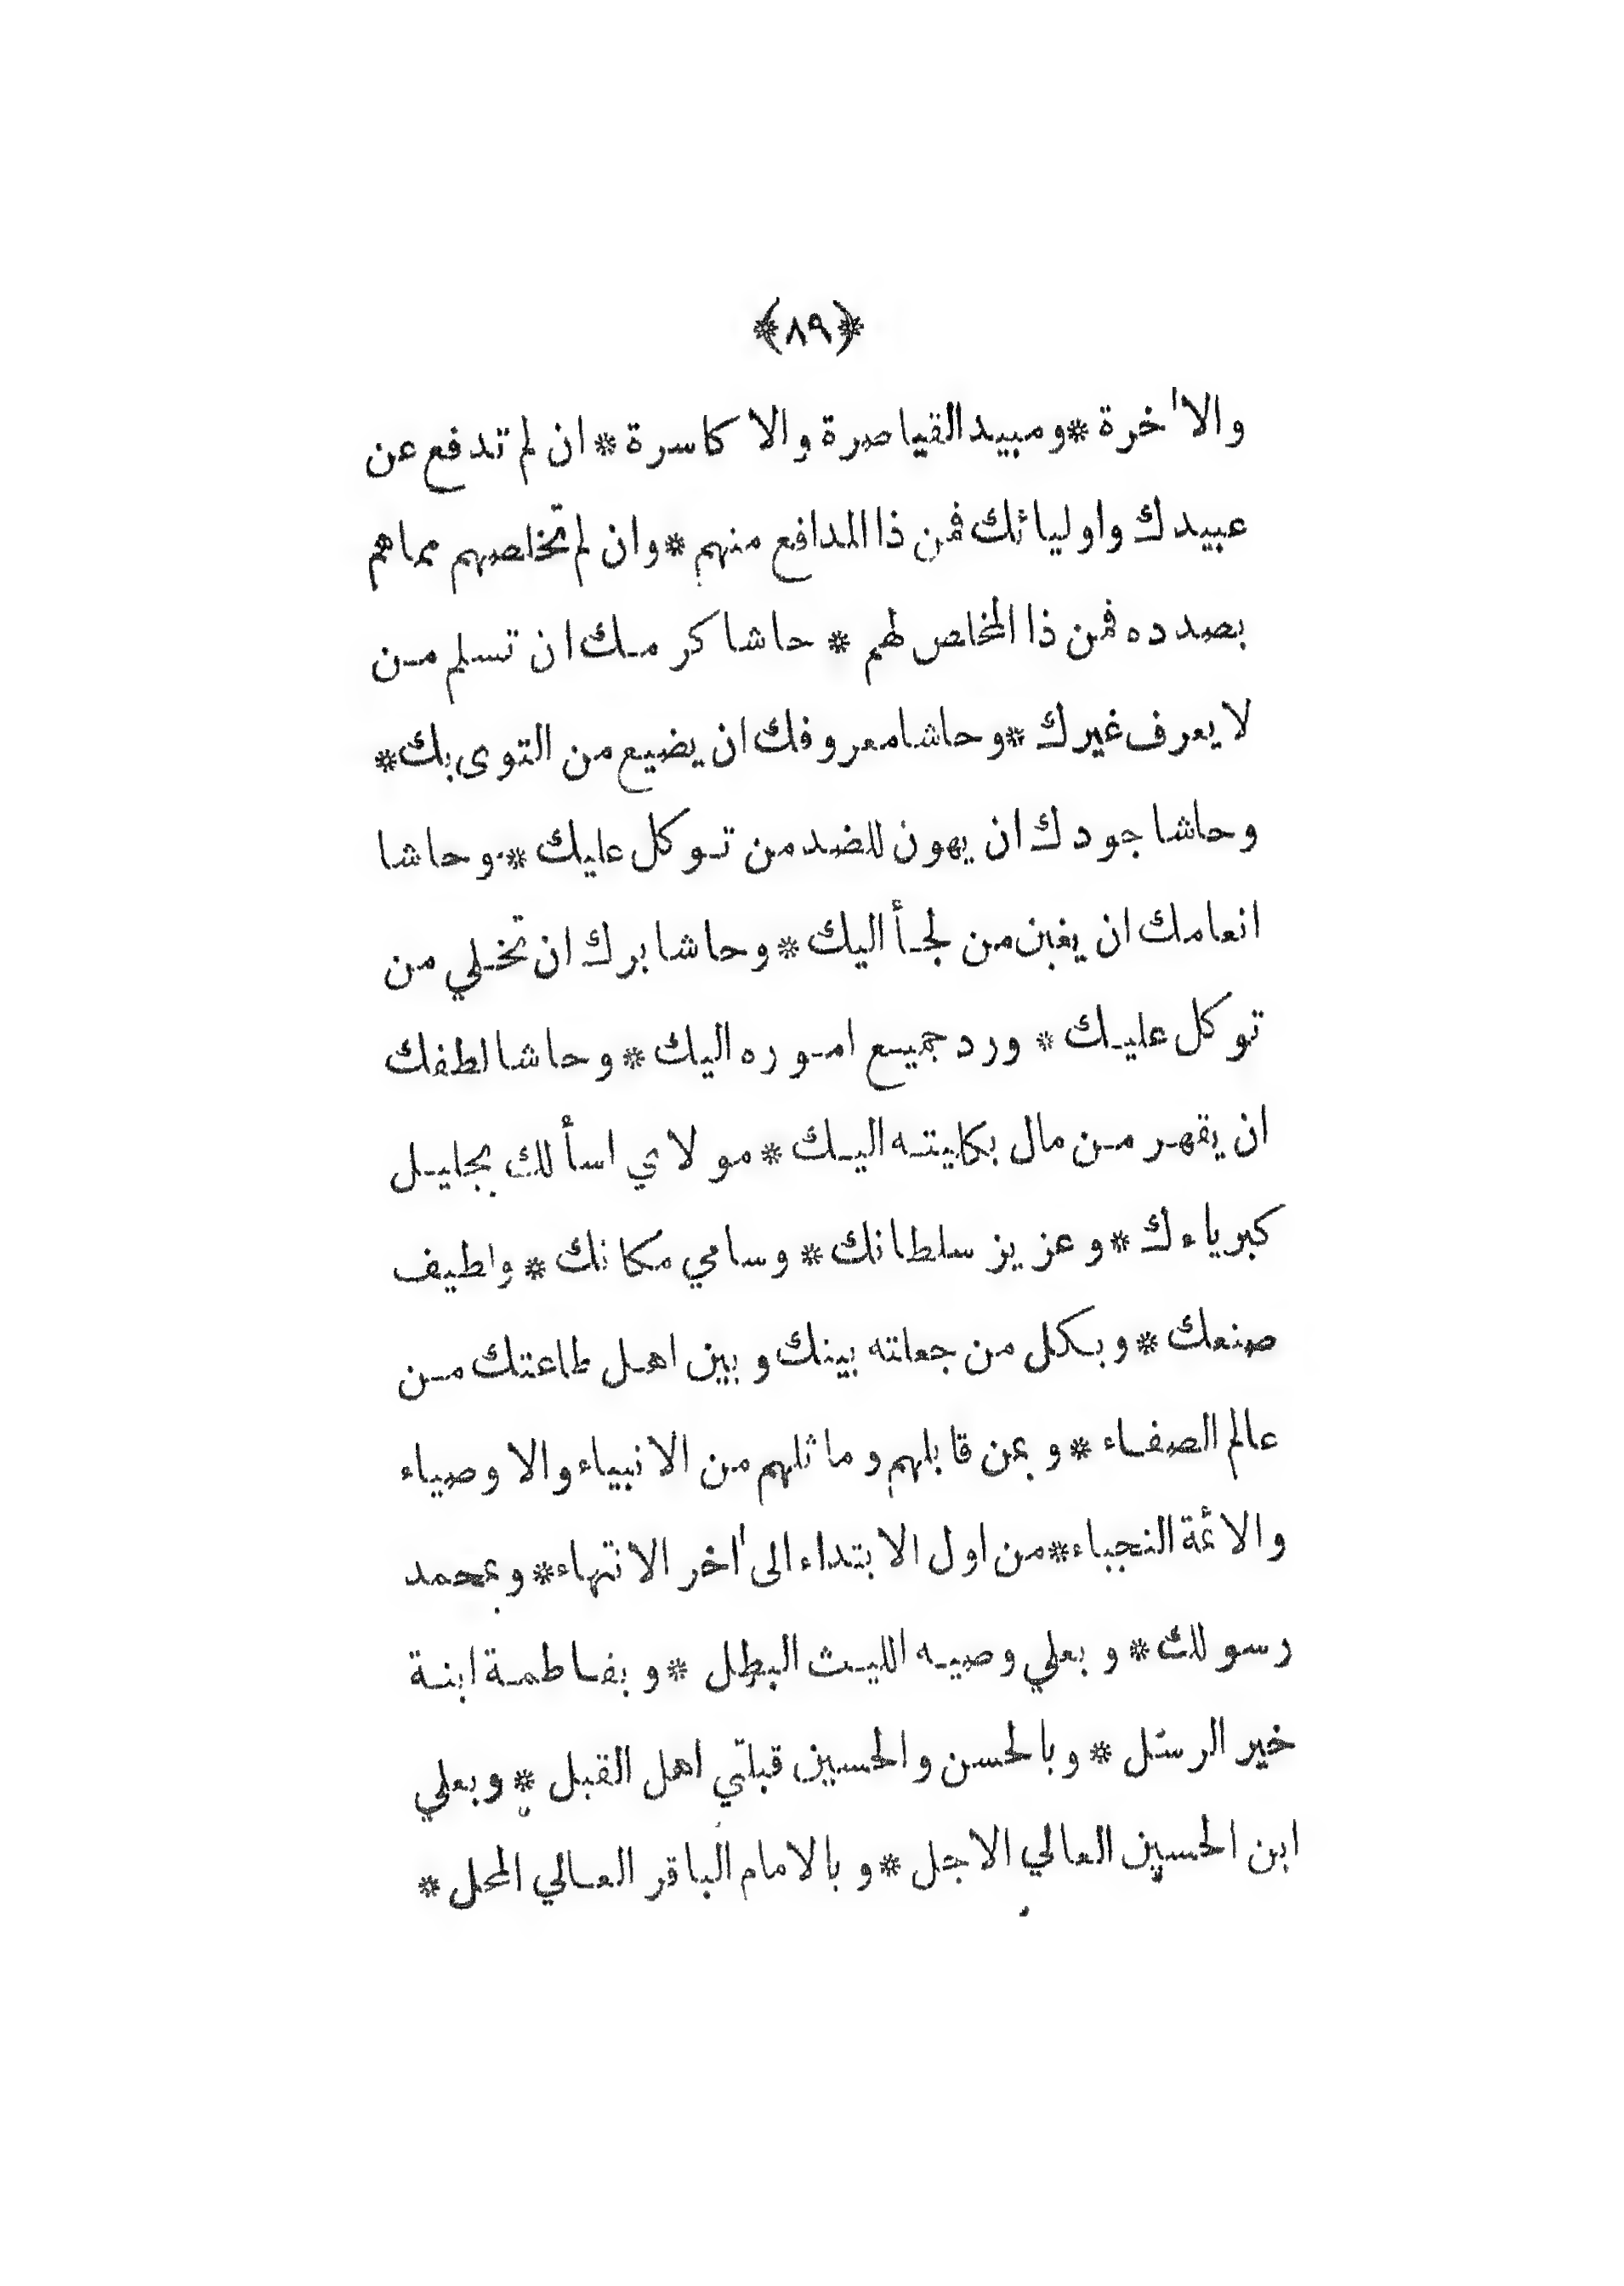 ﴿٨٩﴾
والاٰخرة * ومبيد القياصرة والاكاسرة * ان لم تدفع عن
عبيدك واوليائك فمن ذا المدافع منهم * وان لم تخلصهم مما هم
بصدده فمن ذا المخلص لهم * حاشا كرمك ان تسلم من
لا يعرف غيرك * وحاشا معروفك ان يضيع من التوى بك *
وحاشا جودك ان يهون للضد من توكل عليك * وحاشا
انعامك ان يغبن من لجأ اليك * وحاشا برك ان تخلي من
توكل عليك * ورد جميع اموره اليك * وحاشا لطفك
ان يقهر من مال بكليته اليك * مولاي اسألك بجليل
كبرياءك * وعزيز سلطانك * وسامي مكانك * ولطيف
صنعك * وبكل من جعلته بينك وبين اهل طاعتك من
عالم الصفاء * وبمن قابلهم وماثلهم من الانبياء والاوصياء
والائمة النجباء * من اول الابتداء الى اٰخر الانتهاء * وبمحمد
رسولك * وبعلي وصيه الليث البطل * وبفاطمة ابنة
خير الرسل * وبالحسن والحسين قبلتي اهل القبل * وبعلي
ابن الحسين العالي الاجل * وبالامام الباقر العالي المحل *